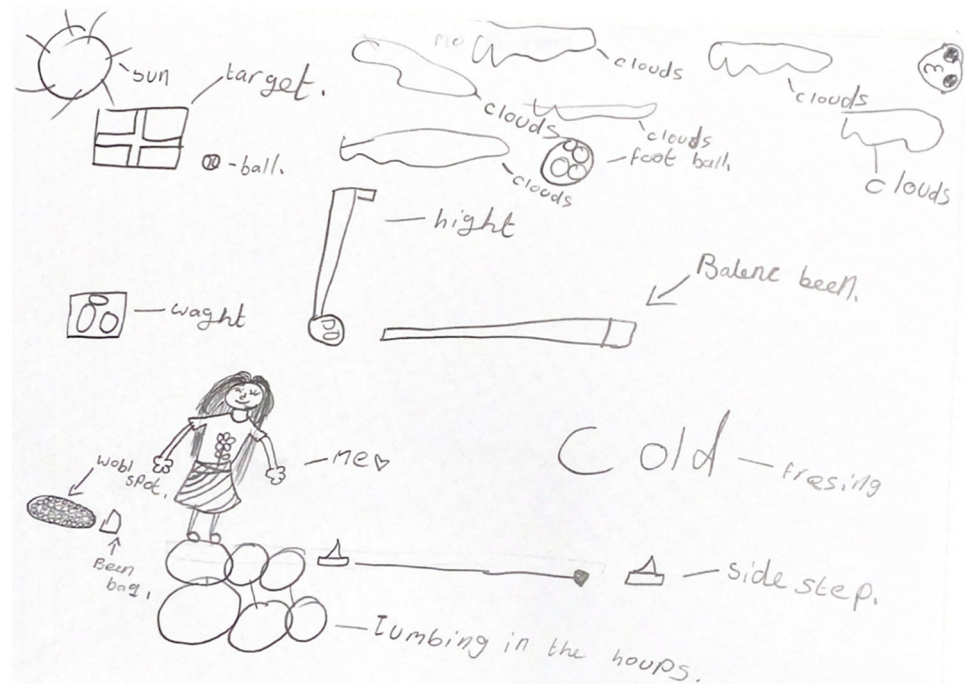 sun
target.
clouds
clouds
clouds
clouds
clouds
clouds
ball.
foot ball.
hight
Balenc been.
waght
me
Cold
fresing
wobl
spot.
Been
bag.
side step.
Jumbing in the houps.